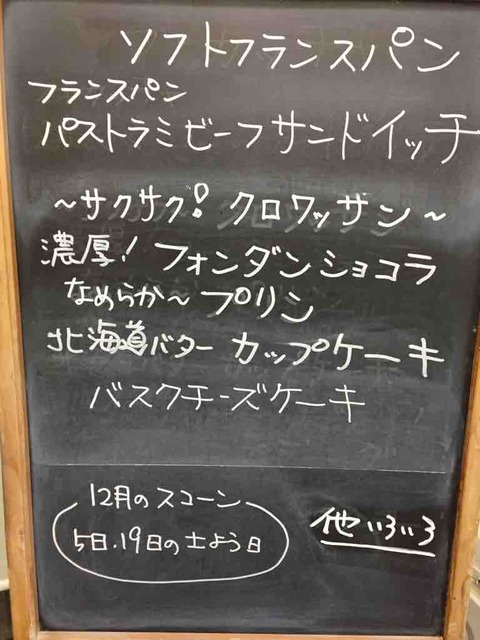 ソフトフランスパン
フランスパン
パストラミビーフサンドイッチ
～サクサク！クロワッサン～
濃厚！フォンダンショコラ
なめらか～プリン
北海道バターカップケーキ
バスクチーズケーキ
12月のスコーン
5日、19日の土よう日
他いろいろ